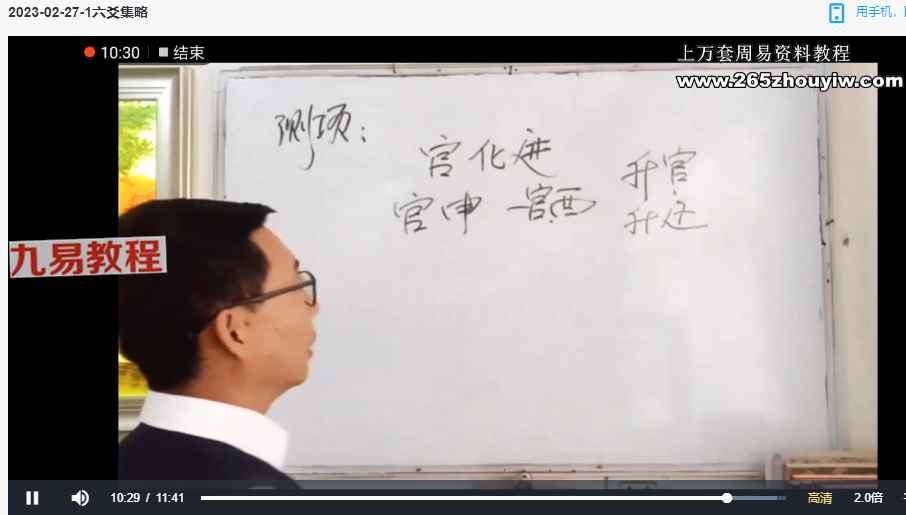 2023-02-27-1六爻集略
用手机,
10:30 结束
上万套周易资料教程
www.265zhouyiw.com
测项:
官化进
官申 官酉
升官
升迁
九易教程
10:29 / 11:41
高清
2.0倍